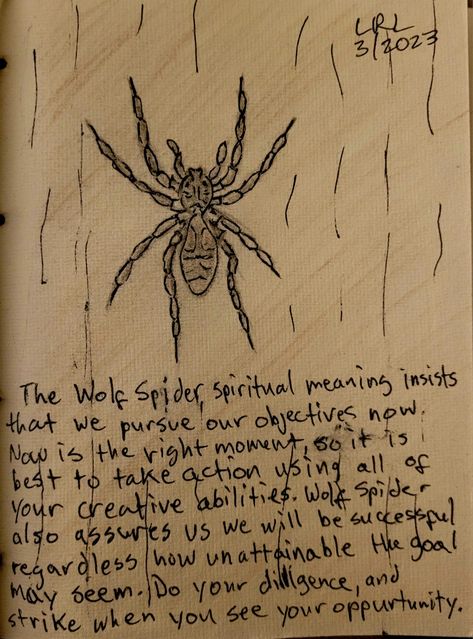 LRL
3/2023
The Wolf Spider, spiritual meaning insists
that we pursue our objectives now.
Now is the right moment, so it is
best to take action using all of
your creative abilities. Wolf Spider
also assures us we will be successful
regardless how unattainable the goal
may seem. Do your dilligence, and
strike when you see your oppurtunity.